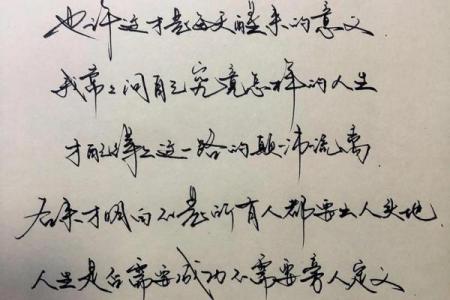 也许这才是每天醒来的意义
我常常问自己究竟怎样的人生
才配得上这一路的颠沛流离
后来才明白不是所有人都要出人头地
人生是否需要成功不需要旁人定义